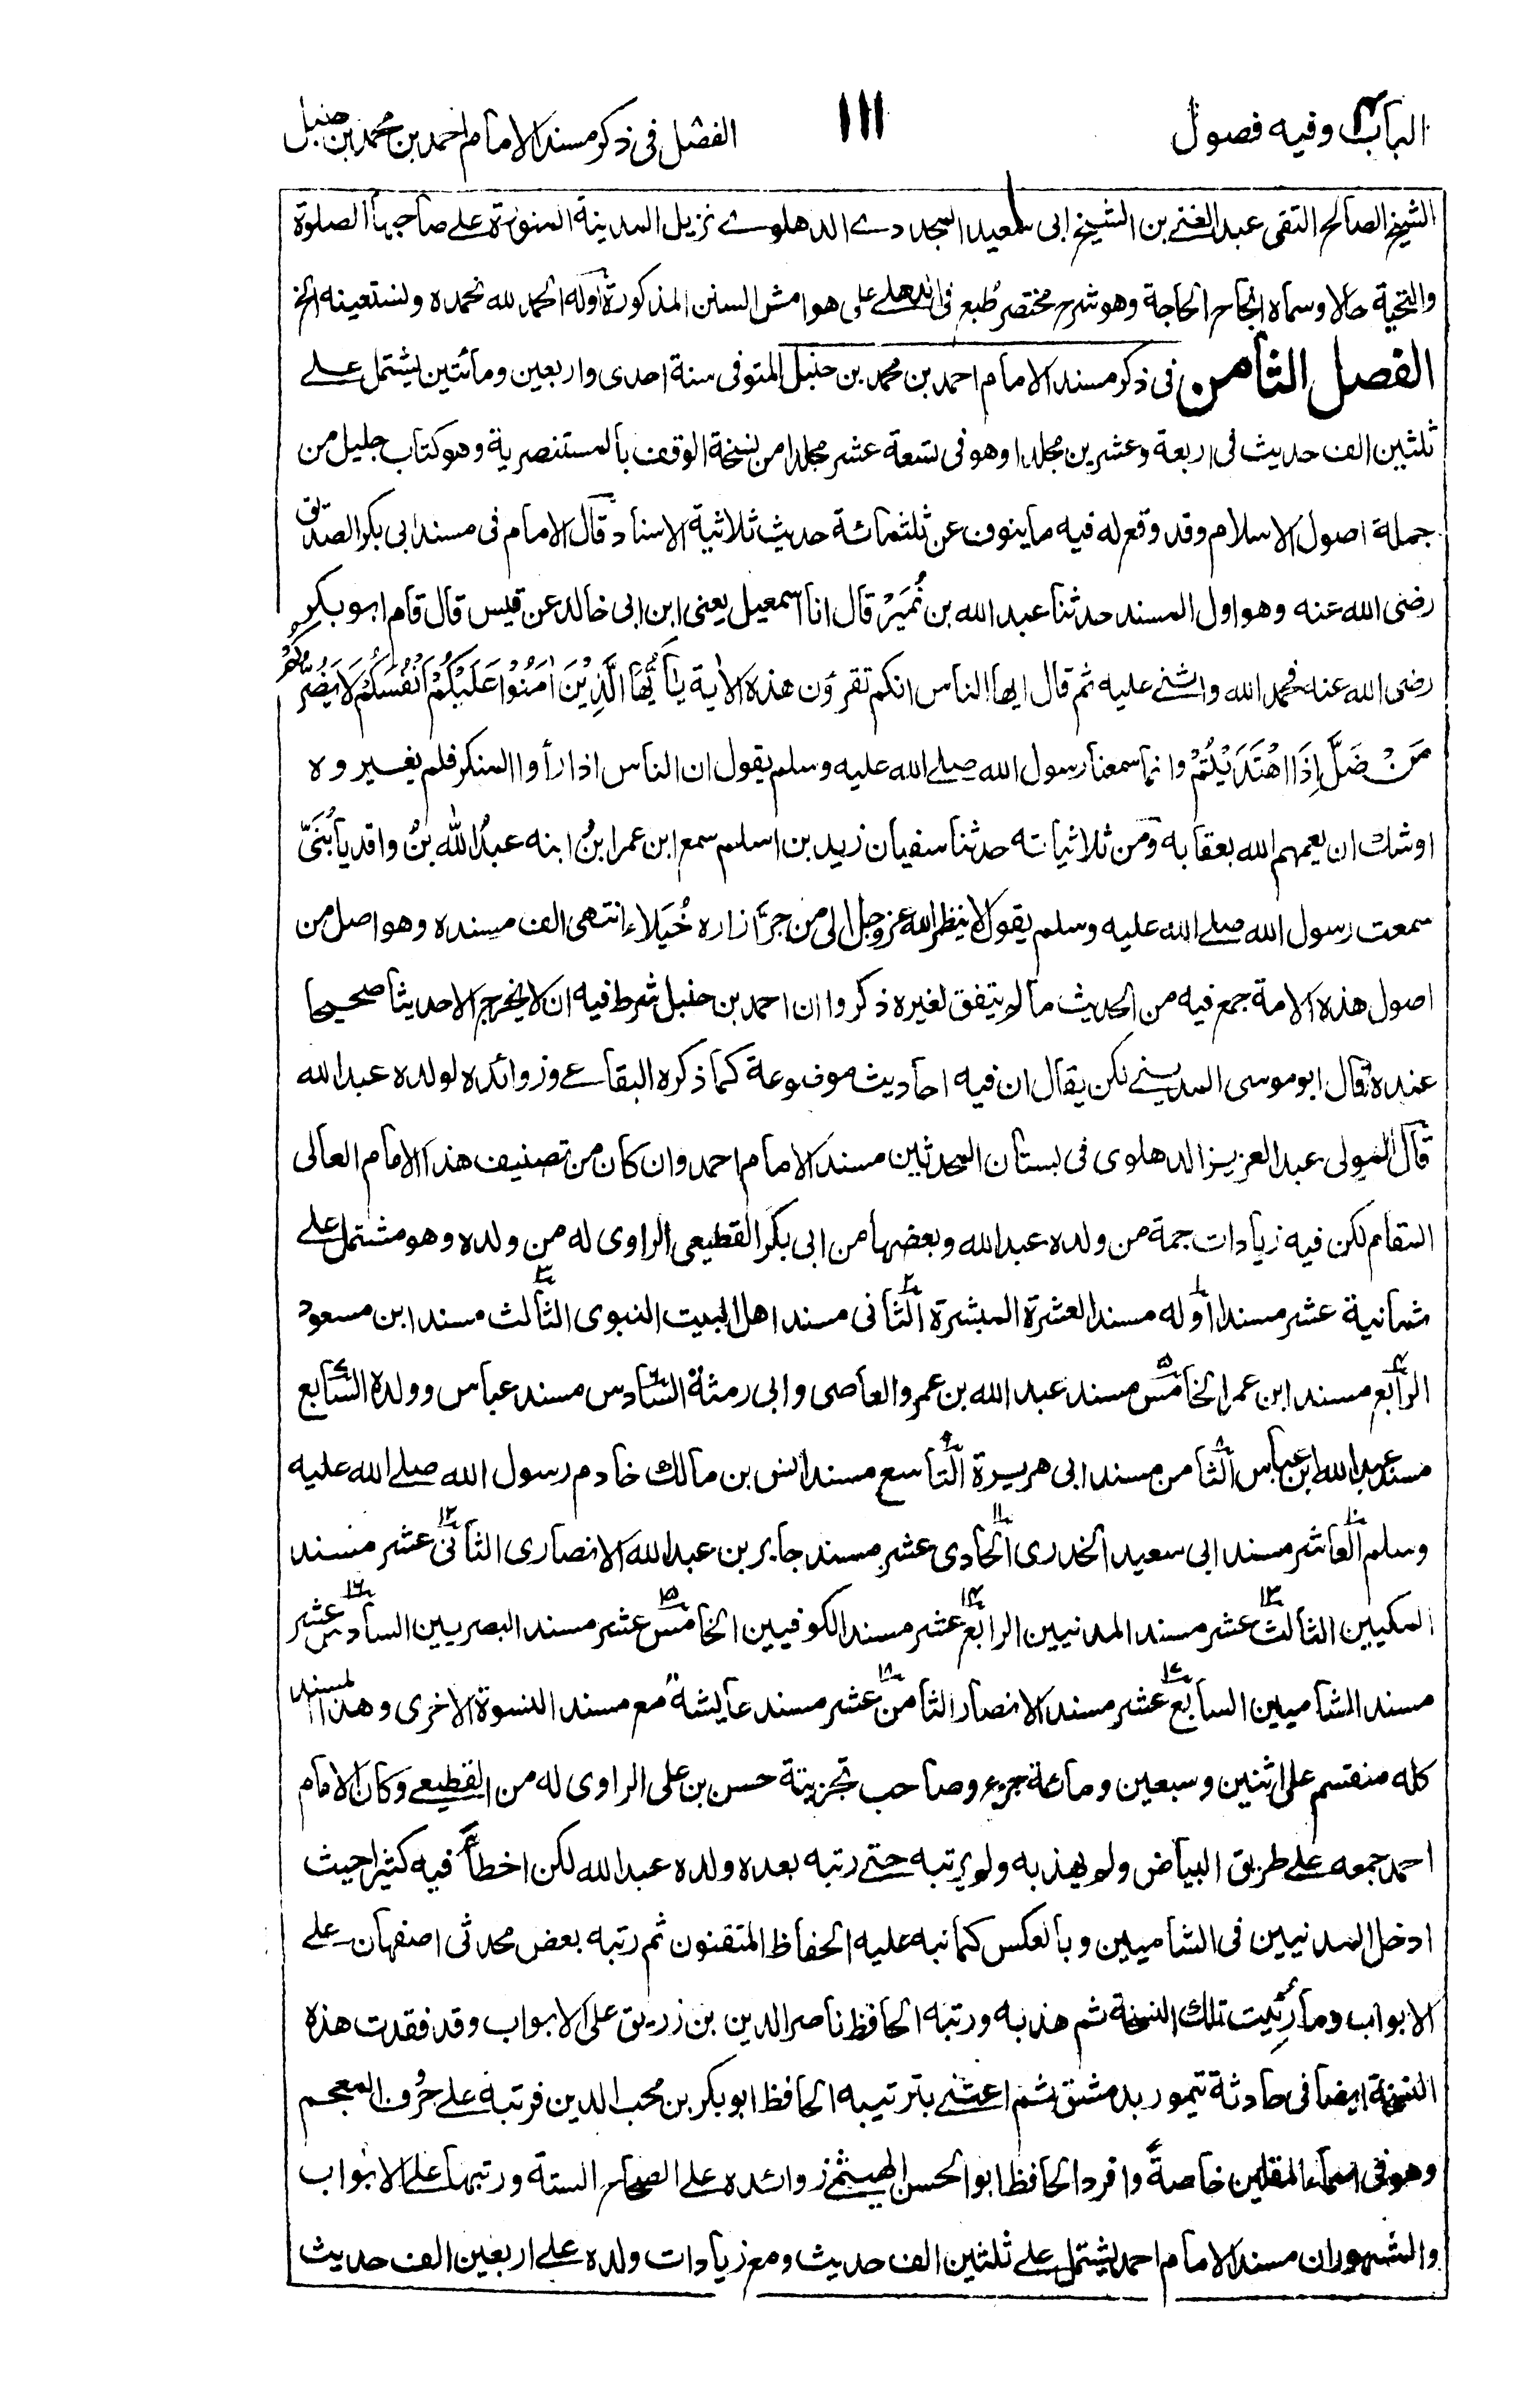 الباب۴ وفيه فصول
١١١
الفصل في ذكر مسند الامام احمد بن محمد بن حنبل
الشيخ الصالح التقى عبد الغنے بن الشيخ ابى سعيد المجددے الدهلوے نزيل المدينة المنورة علے صاحبها الصلوة
والتحية حالا وسماه انجاح الحاجة وهو شرح مختصر طبع فى الدهلے على هوامش السنن المذكورة اوله الحمد لله نحمده ونستعينه الخ
الفصل الثامن فى ذكر مسند الامام احمد بن محمد بن حنبل المتوفى سنة احدى واربعين ومأئتين يشتمل علے
ثلثين الف حديث فى اربعة وعشرين مجلدا وهو فى تسعة عشر مجلدا من نسخة الوقف بالمستنصرية وهو كتاب جليل من
جملة اصول الاسلام وقد وقع له فيه ما ينوف عن ثلثمائة حديث ثلاثية الاسناد قال الامام فى مسند ابى بكر الصديق
رضى الله عنه وهو اول المسند حدثنا عبد الله بن نُمَيْر قال انا اسمعيل يعنى ابن ابى خالد عن قيس قال قام ابو بكر
رضى الله عنه فحمد الله واثنے عليه ثم قال ايها الناس انكم تقرؤن هذه الاٰية يٰأَيُّهَا الَّذِيْنَ اٰمَنُوْا عَلَيْكُمْ اَنْفُسَكُمْ لَا يَضُرُّكُمْ
مَنْ ضَلَّ اِذَا اهْتَدَيْتُمْ وانما سمعنا رسول الله صلے الله عليه وسلم يقول ان الناس اذا رأوا المنكر فلم يغيروه
اوشك ان يعمهم الله بعقابه ومن ثلاثياته حدثنا سفيان زيد بن اسلم سمع ابن عمر ابنُ ابنه عبدُ الله بنُ واقد يا بُنَىَّ
سمعت رسول الله صلے الله عليه وسلم يقول لا ينظر الله عز وجل الى من جرّ ازاره خُيَلاء انتهى الف مسنده وهو اصل من
اصول هذه الامة جمع فيه من الحديث ما لم يتفق لغيره ذكروا ان احمد بن حنبل شرط فيه ان لا يخرج الا حديثا صحيحا
عنده قال ابو موسى المدينے لكن يقال ان فيه احاديث موضوعة كما ذكره البقاعے وزوائده لولده عبد الله
قال المولى عبد العزيز الدهلوى فى بستان المحدثين مسند الامام احمد وان كان من تصنيف هذا الامام العالى
المقام لكن فيه زيادات جمة من ولده عبد الله وبعضها من ابى بكر القطيعى الراوى له من ولده وهو مشتمل علے
ثمانية عشر مسندا اوله۱ مسند العشرة المبشرة الثانى۲ مسند اهل البيت النبوى الثالث۳ مسند ابن مسعود
الرابع۴ مسند ابن عمر الخامس۵ مسند عبد الله بن عمرو العاصى وابى رمثة السادس۶ مسند عباس وولده السابع۷
مسند عبد الله ابن عباس الثامن۸ مسند ابى هريرة التاسع۹ مسند انس بن مالك خادم رسول الله صلے الله عليه
وسلم العاشر۱۰ مسند ابى سعيد الخدرى الحادى عشر۱۱ مسند جابر بن عبد الله الانصارى الثانى عشر۱۲ مسند
المكيين الثالث عشر۱۳ مسند المدنيين الرابع عشر۱۴ مسند الكوفيين الخامس عشر۱۵ مسند البصريين السادس عشر۱۶
مسند الشاميين السابع عشر۱۷ مسند الانصار الثامن عشر۱۸ مسند عايشة مع مسند النسوة الاخرى وهذا المسند
كله منقسم على اثنين وسبعين ومائة جزء وصاحب تجزيتة حسن بن على الراوى له من القطيعے وكان الامام
احمد جمعه علے طريق البياض ولم يهذبه ولم يرتبه حتے رتبه بعده ولده عبد الله لكن اخطأ فيه كثيرا حيث
ادخل المدنيين فى الشاميين وبالعكس كما نبه عليه الحفاظ المتقنون ثم رتبه بعض محدثى اصفهان علے
الابواب وما رئيت تلك النسخة ثم هذبه ورتبه الحافظ ناصر الدين بن زريق على الابواب وقد فقدت هذه
النسخة ايضا فى حادثة تيمور بدمشق ثم اعتنے بترتيبه الحافظ ابو بكر بن محب الدين فرتبه علے حروف المعجم
وهو فى اسماء المقلين خاصة وافرد الحافظ ابو الحسن الهيثمے زوائده علے الصحاح الستة ورتبها علے الابواب
والمشهور ان مسند الامام احمد يشتمل علے ثلثين الف حديث ومع زيادات ولده علے اربعين الف حديث